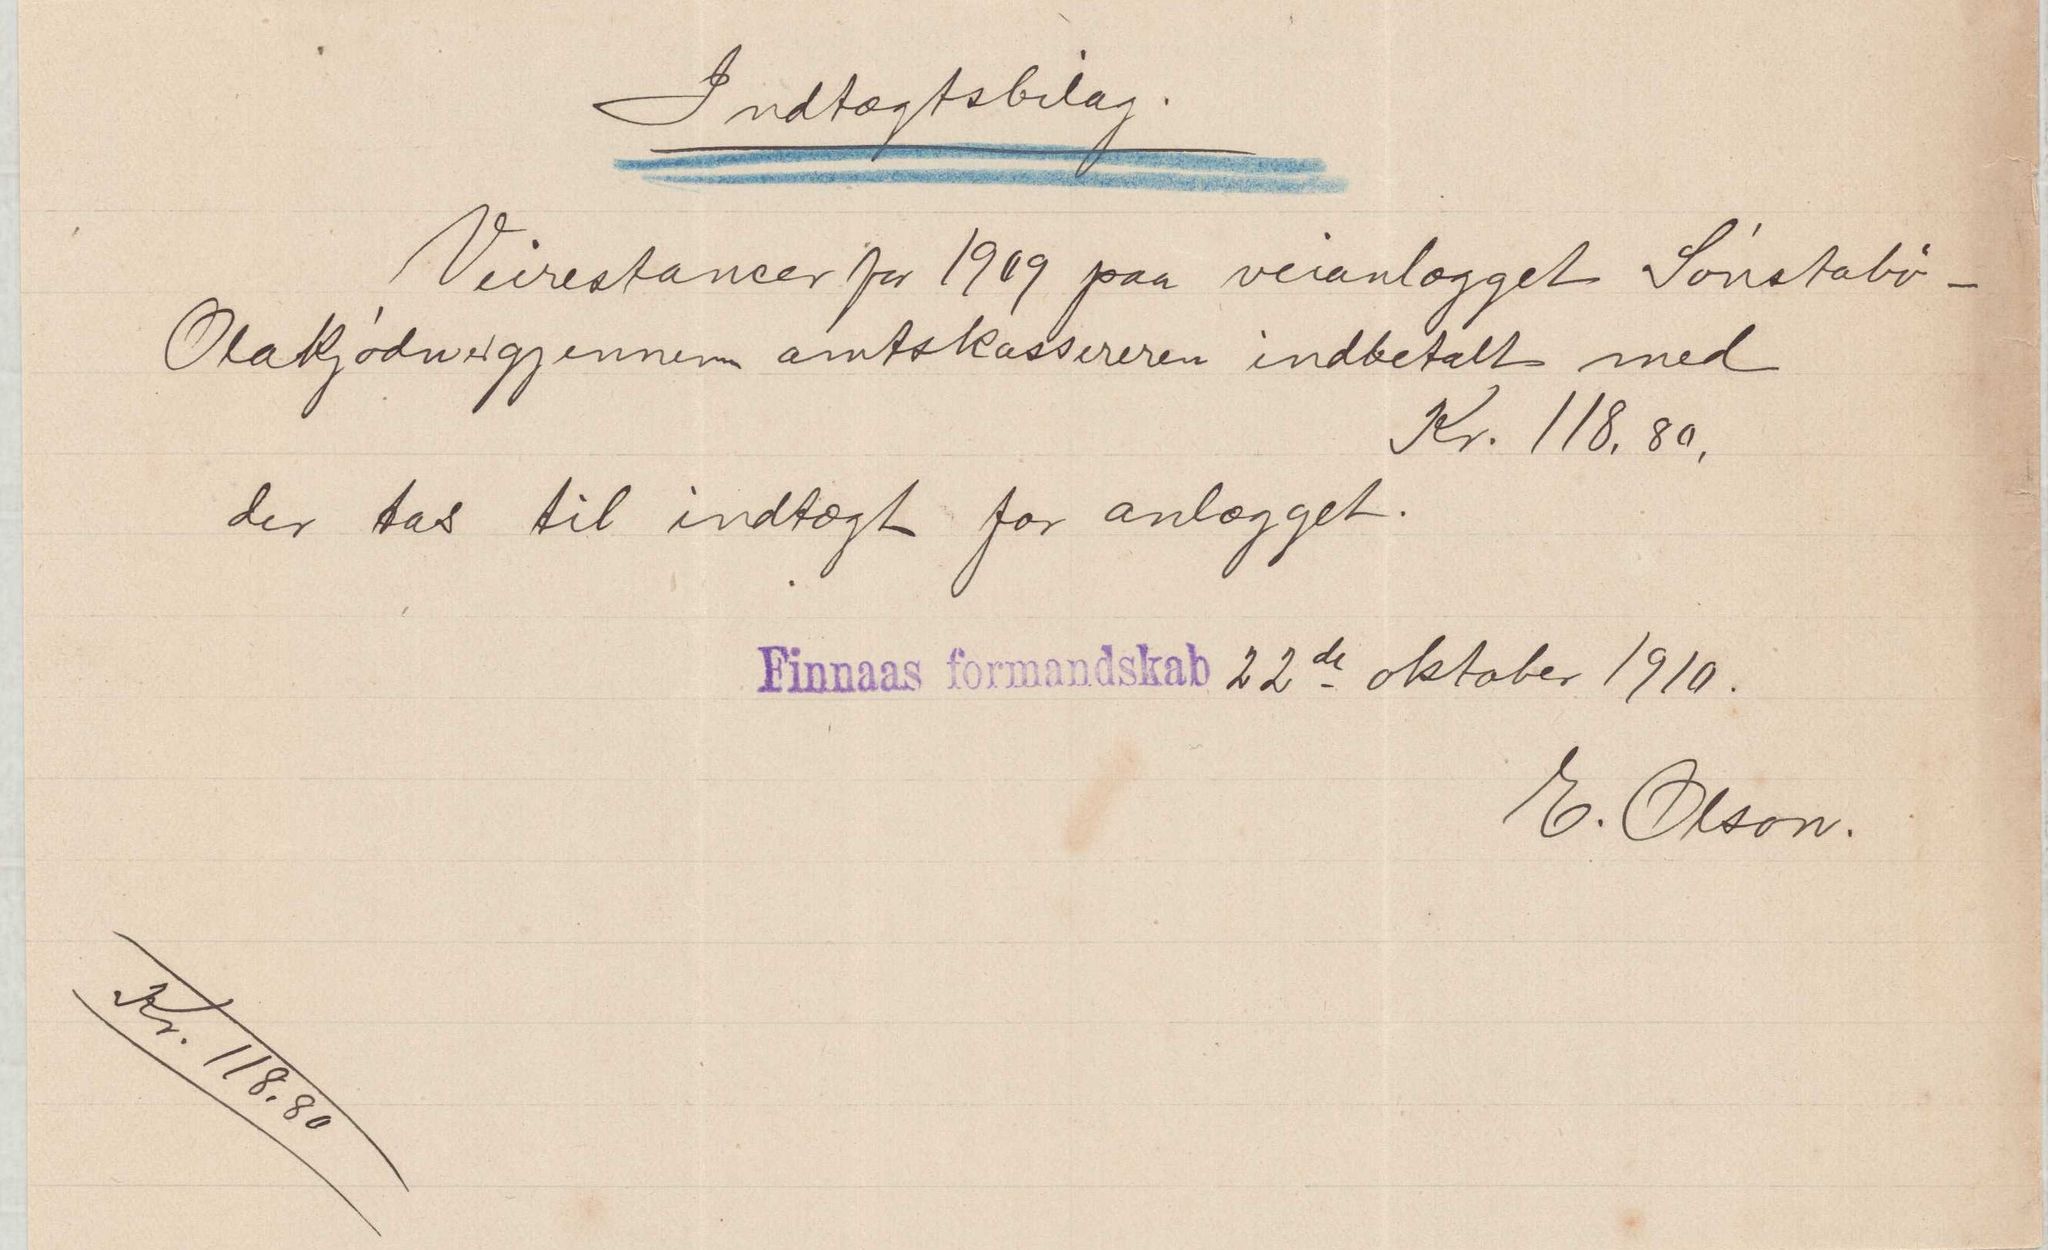 Indtægtsbilag.
Veirestancer for 1909 paa veianlægget Sónstabö -
Olakjódn er gjennem amtskassereren indbetalt med
Kr. 118.80,
der tas til indtægt for anlægget.
Finnaas formandskab 22de oktober 1910.
E. Olson.
Kr. 118.80